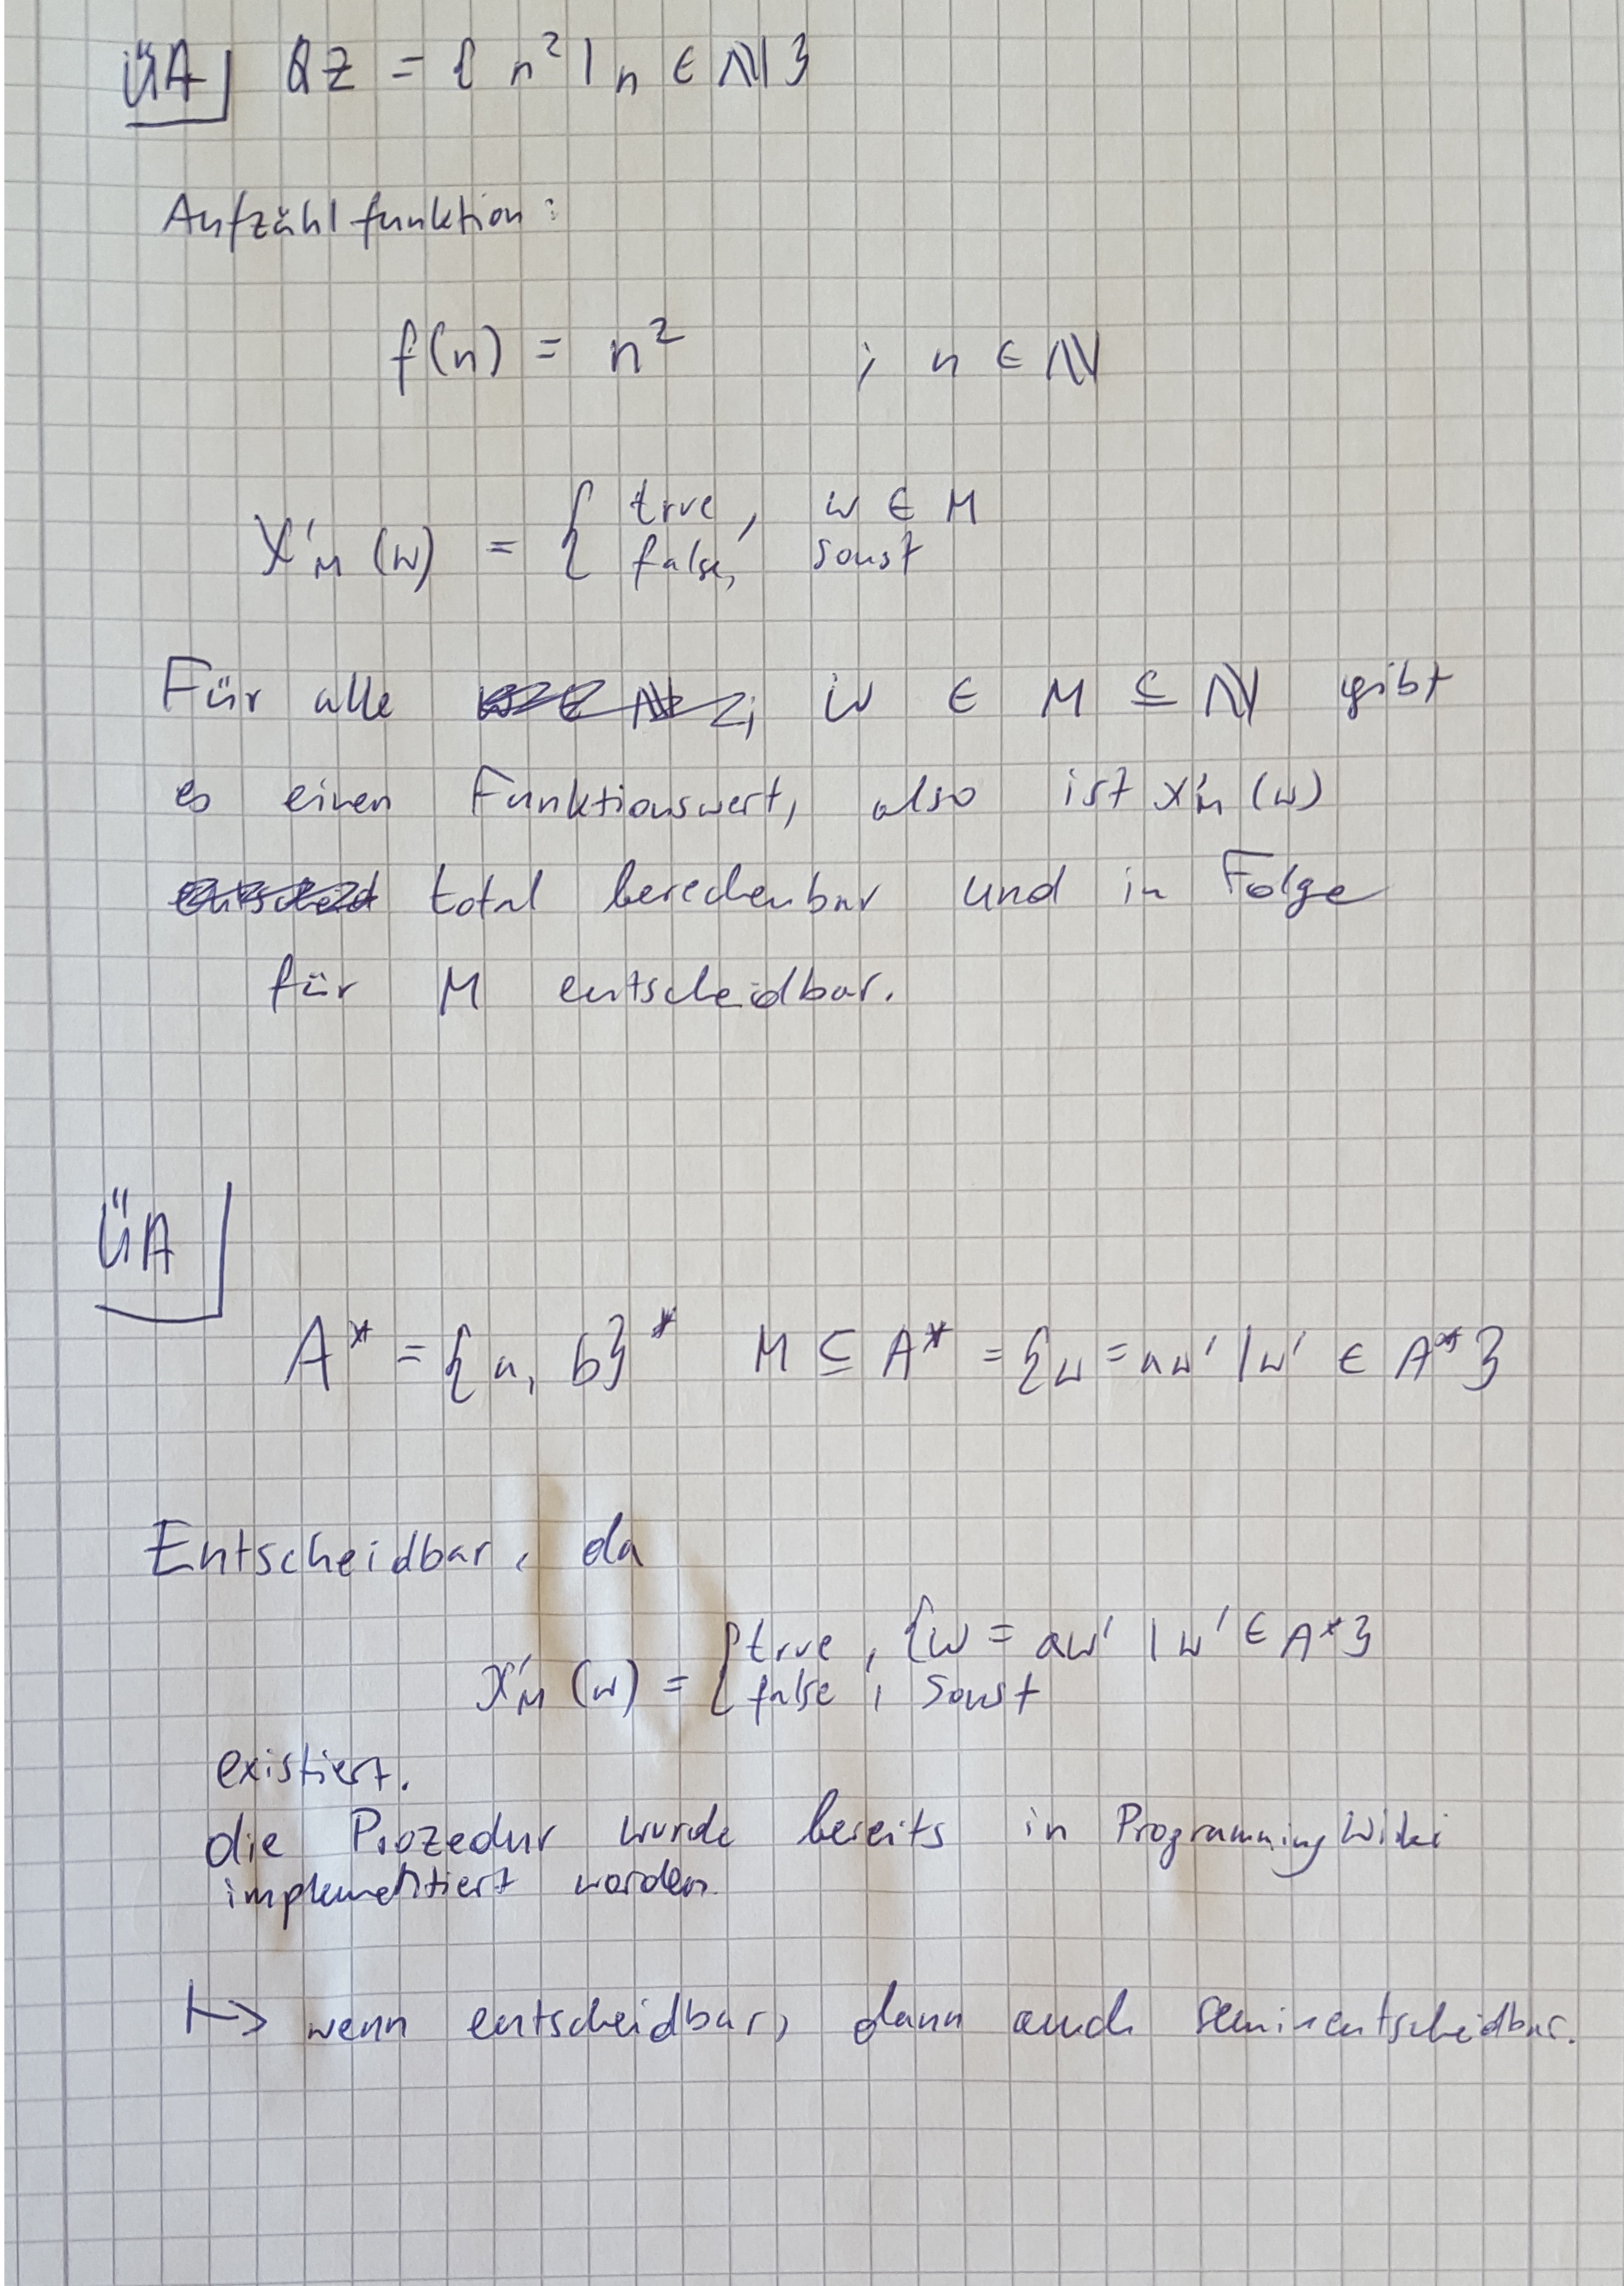 ÜA QZ = { n² | n ∈ ℕ }
Aufzählfunktion:
f(n) = n² ; n ∈ ℕ
χ'M (w) = { true, w ∈ M
false, sonst
Für alle w ∈ M ⊆ ℕ gibt
es einen Funktionswert, also ist χ'M (w)
total berechenbar und in Folge
für M entscheidbar.
ÜA
A* = {a, b}* M ⊆ A* = {w = aw' | w' ∈ A*}
Entscheidbar, da
χ'M (w) = { true, {w = aw' | w' ∈ A*}
false, sonst
existiert.
die Prozedur wurde bereits in ProgrammingWiki
implementiert worden.
↦ wenn entscheidbar, dann auch semi-entscheidbar.